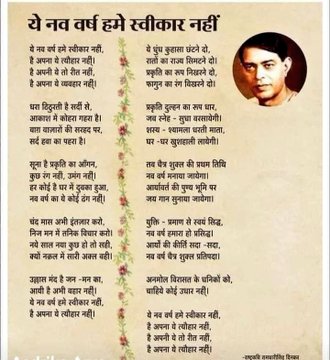 ये नव वर्ष हमे स्वीकार नहीं
ये नव वर्ष हमे स्वीकार नहीं,
है अपना ये त्यौहार नहीं।
है अपनी ये तो रीत नहीं,
है अपना ये व्यवहार नहीं।
धरा ठिठुरती है सर्दी से,
आकाश में कोहरा गहरा है।
बाग़ बाज़ारों की सरहद पर,
सर्द हवा का पहरा है।
सूना है प्रकृति का आँगन,
कुछ रंग नहीं, उमंग नहीं।
हर कोई है घर में दुबका हुआ,
नव वर्ष का ये कोई ढंग नहीं।
चंद मास अभी इंतजार करो,
निज मन में तनिक विचार करो।
नये साल नया कुछ हो तो सही,
क्यों नक़ल में सारी अक्ल बही।
उल्लास मंद है जन -मन का,
आयी है अभी बहार नहीं।
ये नव वर्ष हमे स्वीकार नहीं,
है अपना ये त्यौहार नहीं।
ये धुंध कुहासा छंटने दो,
रातों का राज्य सिमटने दो।
प्रकृति का रूप निखरने दो,
फागुन का रंग बिखरने दो।
प्रकृति दुल्हन का रूप धार,
जब स्नेह - सुधा बरसायेगी।
शस्य - श्यामला धरती माता,
घर -घर खुशहाली लायेगी।
तब चैत्र शुक्ल की प्रथम तिथि
नव वर्ष मनाया जायेगा।
आर्यावर्त की पुण्य भूमि पर
जय गान सुनाया जायेगा।
युक्ति - प्रमाण से स्वयं सिद्ध,
नव वर्ष हमारा हो प्रसिद्ध।
आर्यों की कीर्ति सदा -सदा,
नव वर्ष चैत्र शुक्ल प्रतिपदा।
अनमोल विरासत के धनिकों को,
चाहिये कोई उधार नहीं।
ये नव वर्ष हमे स्वीकार नहीं,
है अपना ये त्यौहार नहीं।
है अपनी ये तो रीत नहीं,
है अपना ये त्यौहार नहीं।
-राष्ट्रकवि रामधारीसिंह दिनकर